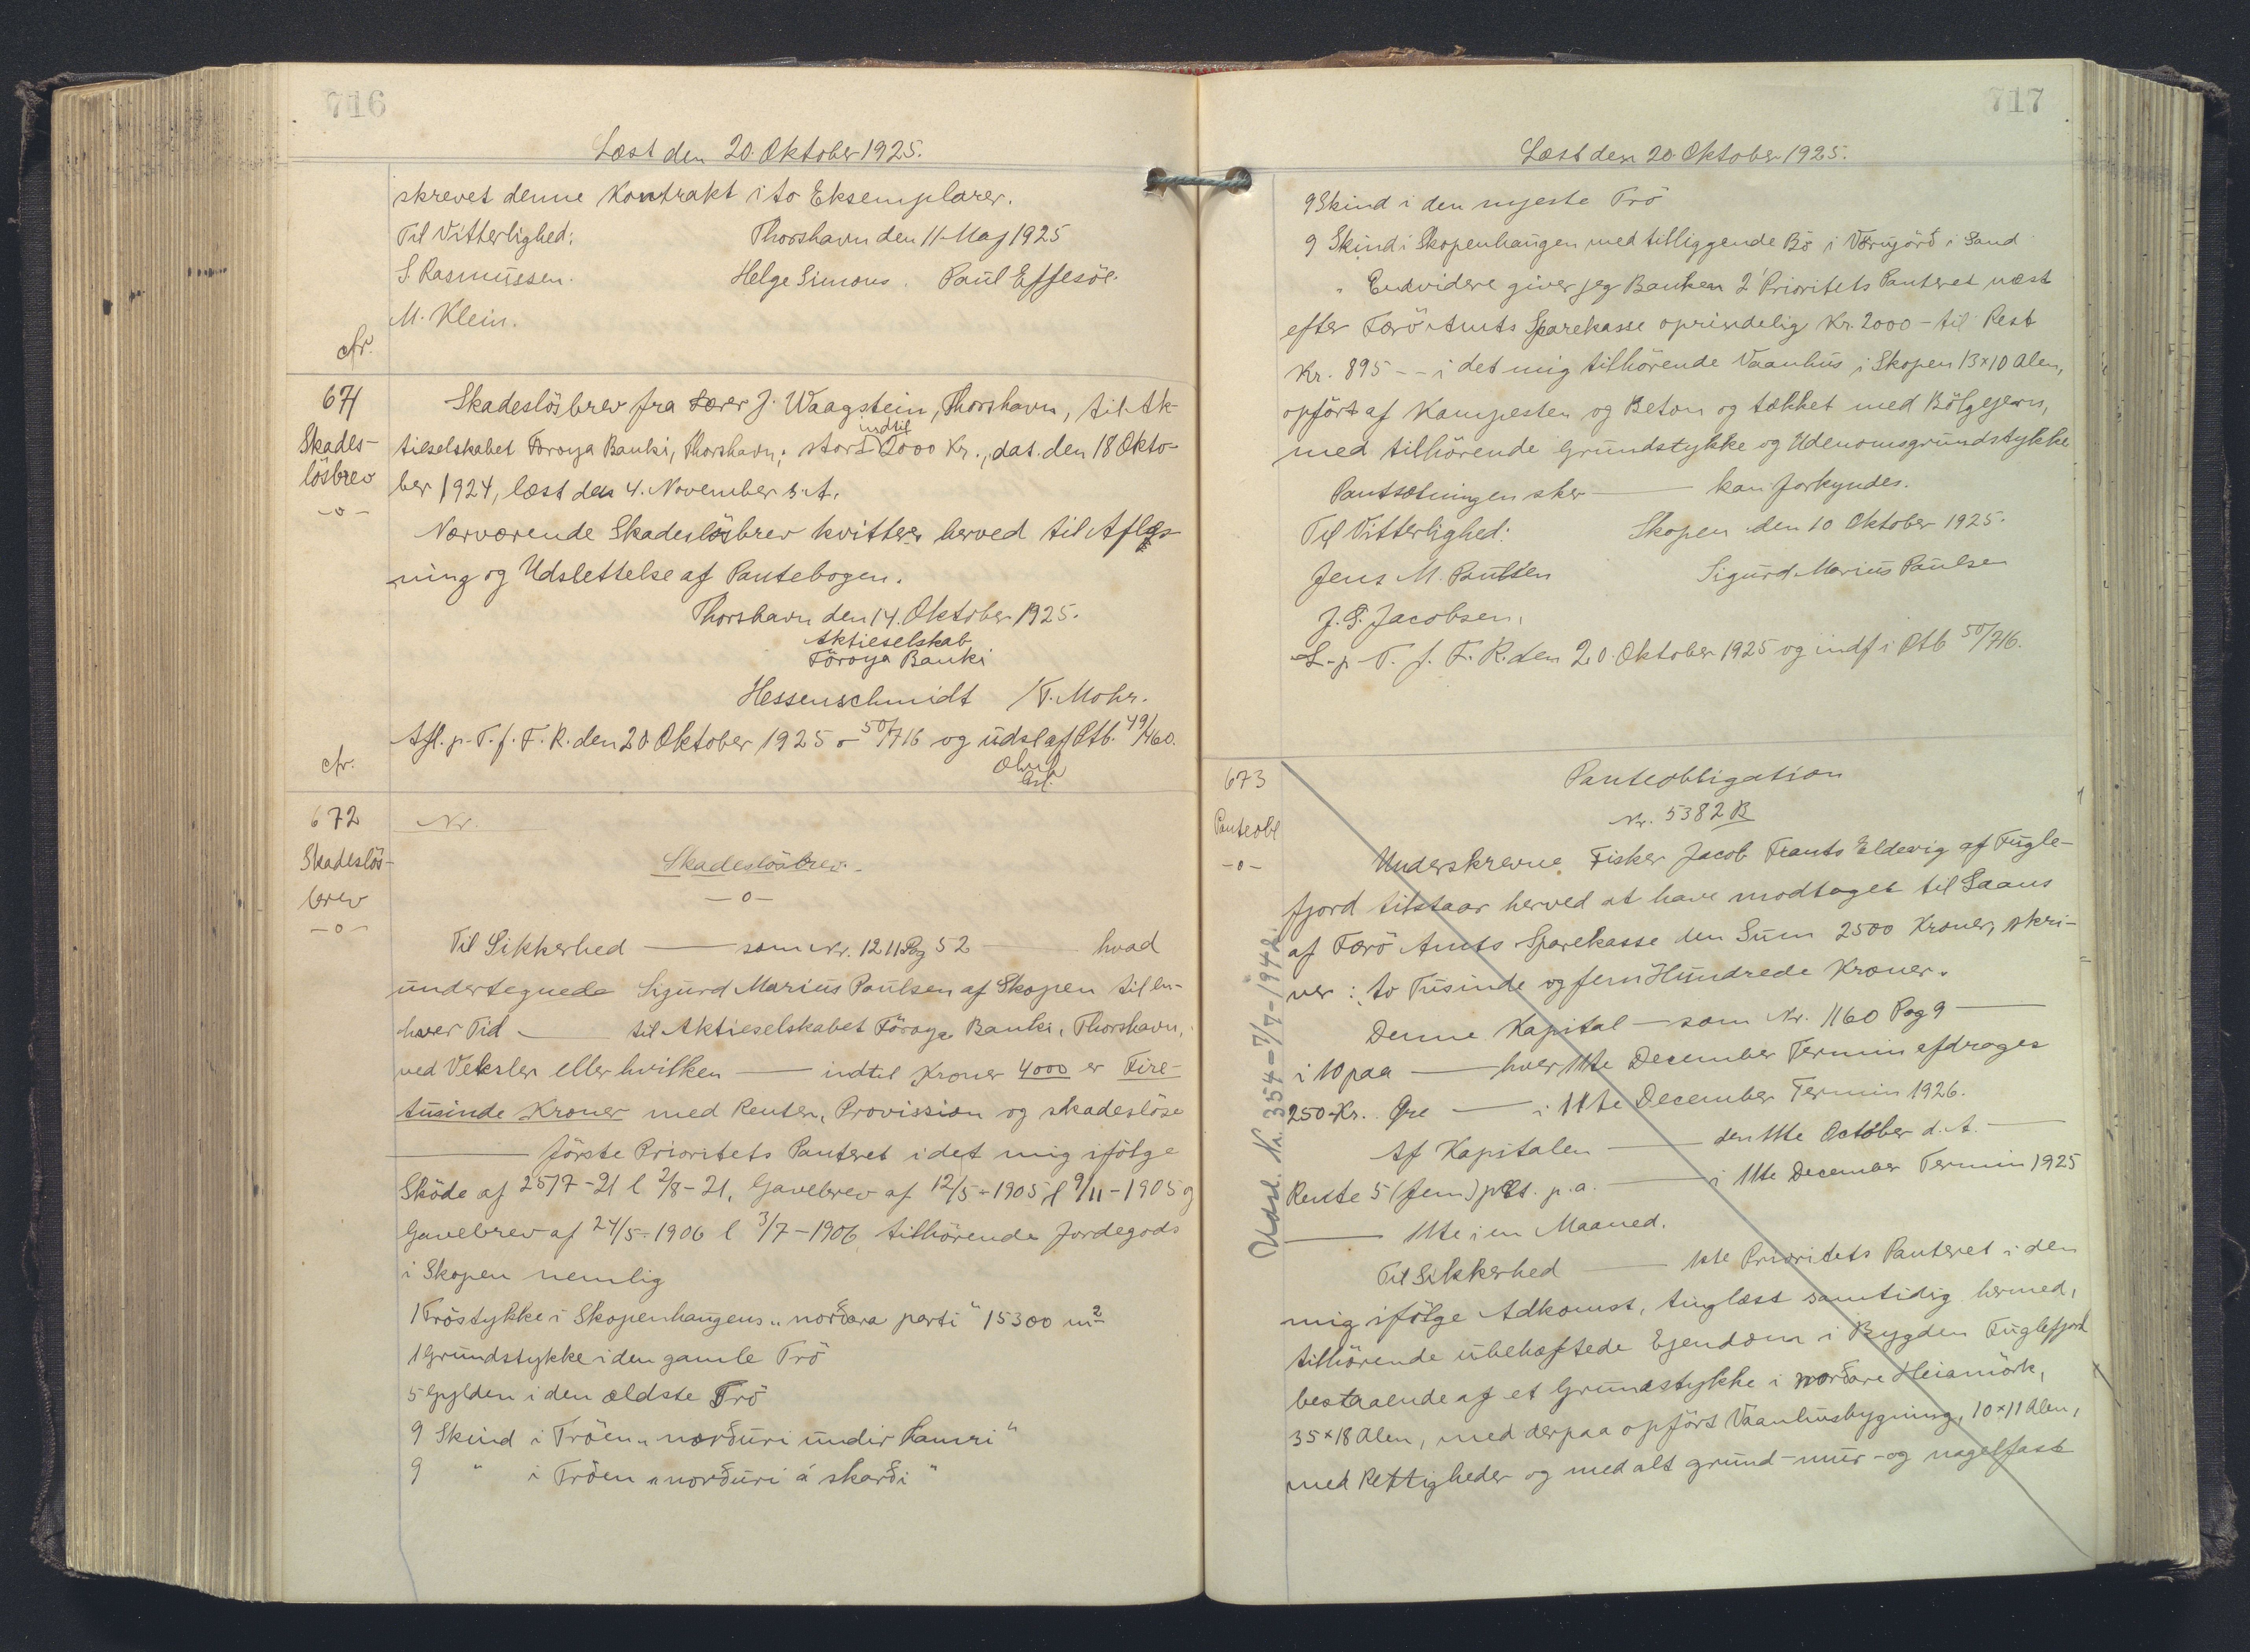 716
Læst den 20. Oktober 1925.
skrevet denne Kontrakt i to Eksemplarer.
Til Vitterlighed: Thorshavn den 11 Maj 1925
S. Rasmussen. Helge Simons. Paul Effesöe.
M. Klein.
cfr.
671
Skades-
lösbrev
-o-
Skadeslösbrev fra Lærer J. Waagstein, Thorshavn, til Ak-
tieselskabet Föroya Banki, Thorshavn; stort indtil 2000 Kr., dat. den 18 Okto-
ber 1924, læst den 4. November s. A.
Nærværende Skadeslösbrev kvitteres herved til Aflæs-
ning og Udslettelse af Pantebogen.
Thorshavn den 14. Oktober 1925.
Aktieselskab
Föroya Banki
Hessenschmidt /T. Mohr.
Afl. p. T. f. F. R. den 20 Oktober 1925 o 50/716 og udsl af Ptb. 49/460.
cfr.
672
Skadeslös-
brev
-o-
Nr.
Skadeslösbrev.
-o-
Til Sikkerhed — som Nr. 1211 Pg 52 — hvad
undertegnede Sigurd Marius Paulsen af Skopen til en-
hver Tid — til Aktieselskabet Föroya Banki, Thorshavn,
ved Veksler eller hvilken — indtil Kroner 4000 er Fire-
tusinde Kroner med Renter, Provission og skadeslöse
— förste Prioritets Panteret i det mig ifölge
Sköde af 25/7-21 l 2/8-21, Gavebrev af 12/5-1905 l 9/11-1905 og
Gavebrev af 24/5-1906 l 3/7-1906 tilhörende Jordegods
i Skopen nemlig
1 Tröstykke i Skopenhaugens "nordara parti" 15300 m2
1 Grundstykke i den gamle Trö
5 Gylden i den ældste Trö
9 Skind i Tröen "norðuri undir hamri"
9 " i Tröen "norðuri á skarði"
717
Læst den 20. Oktober 1925.
9 Skind i den nyeste Trö
9 Skind i Skopenhaugen med tilliggende Bö i Vörugörð i Sand
Endvidere giver jeg Banken 2' Prioritets Panteret næst
efter Færö Amts Sparekasse oprindelig Kr. 2000 - til Rest
Kr. 895 -- i det mig tilhörende Vaanhus i Skopen 13x10 Alen,
opfört af Kampesten og Beton og tækket med Bölgejern,
med tilhörende Grundstykke og Udenomsgrundstykke
Pantsætningen sker — kan forkyndes.
Til Vitterlighed: Skopen den 10 Oktober 1925.
Jens M. Poulsen Sigurd Marius Paulsen
J. S. Jacobsen.
L. p. T. f. F. R. den 20. Oktober 1925 og indf i Ptb 50/716.
673
Panteobl
-o-
Panteobligation
Nr. 5382 B
Underskrevne Fisker Jacob Frants Eldevig af Fugle-
fjord tilstaar herved at have modtaget til Laans
af Færö Amts Sparekasse den Sum 2500 Kroner, skri-
ver: to Tusinde og fem Hundrede Kroner.
Denne Kapital — som Nr. 1160 Pag 9 —
i 10 paa — hver 11te December Termin afdrages
250 Kr. Öre — i 11te December Termin 1926.
Af Kapitalen — den 11te October d. A. —
Rente 5 (fem) pCt. p. a. — i 11te December Termin 1925
— 11te i en Maaned.
Til Sikkerhed — 1ste Prioritets Panteret i den
mig ifölge Adkomst, tinglæst samtidig hermed,
tilhörende ubehæftede Ejendom i Bygden Fuglefjord
bestaaende af et Grundstykke i norðara Heiamörk,
35x18 Alen, med derpaa opfört Vaanhusbygning, 10x11 Alen,
med Rettigheder og med alt grund- mur- og nagelfast
Udsl. Nr. 354 - 7/7 - 1942.